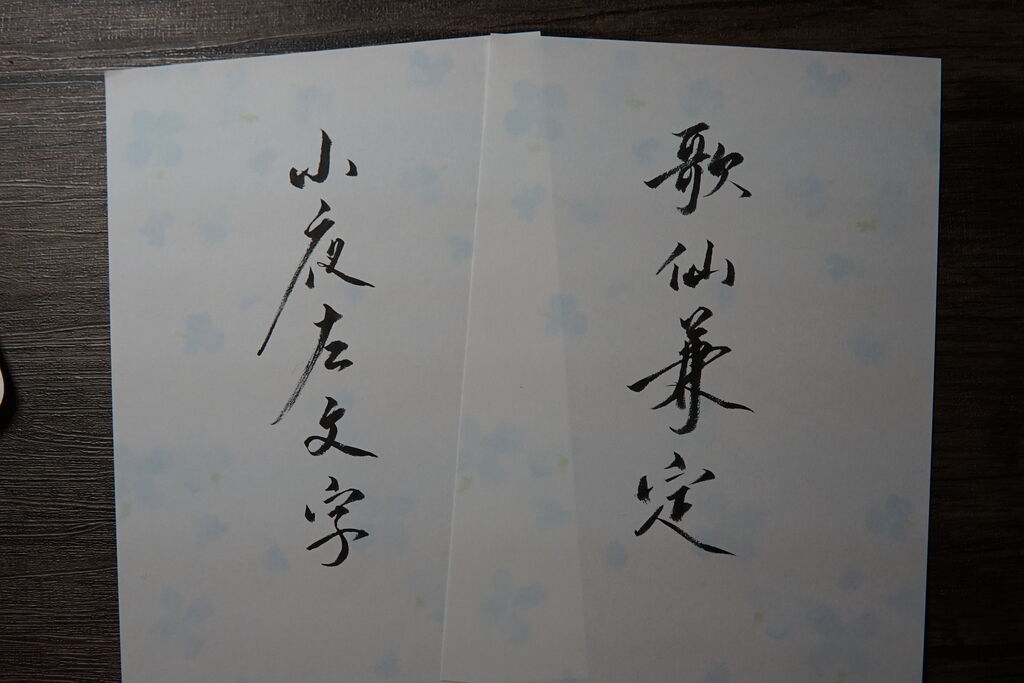 歌仙兼定
小夜左文字